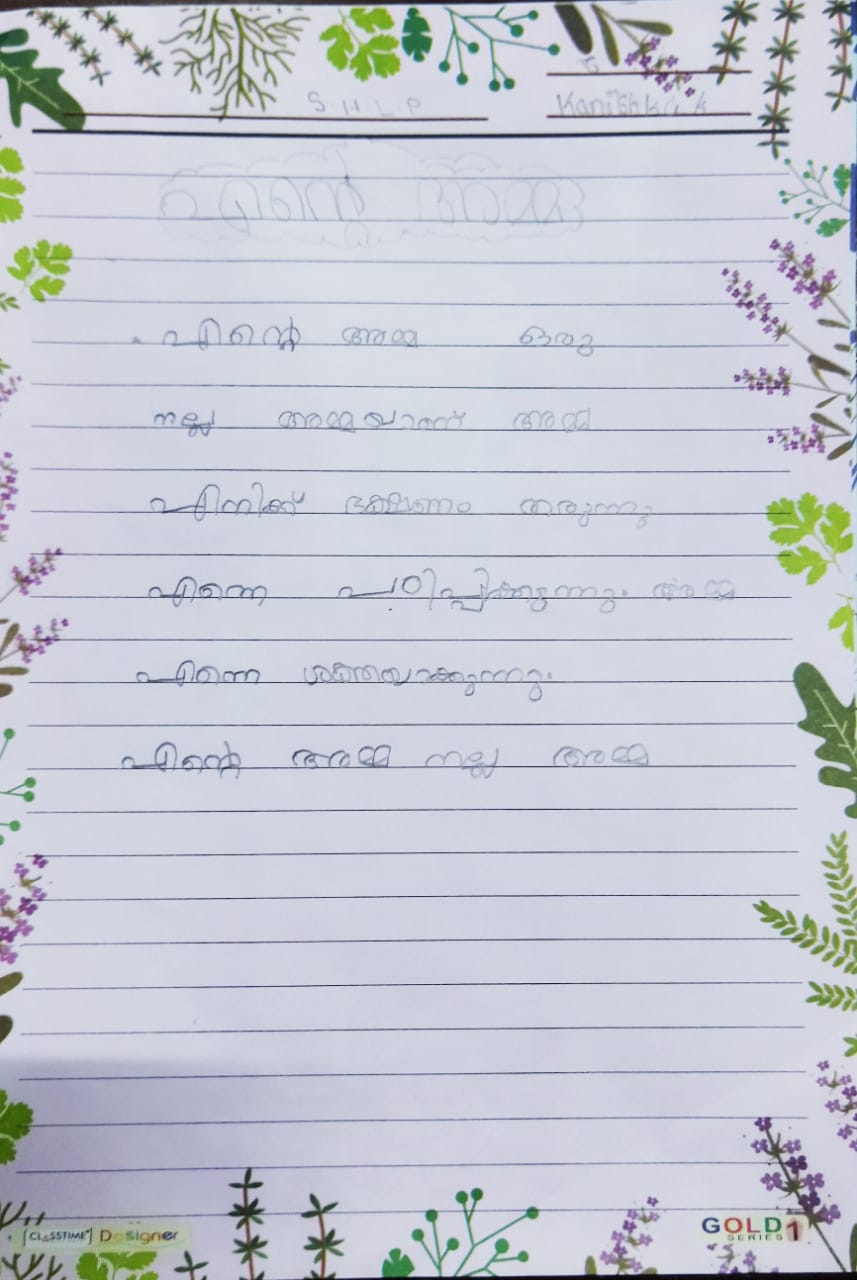 S.H.L.P
Kanishka k
എന്റെ അമ്മ
എന്റെ അമ്മ ഒരു
നല്ല അമ്മയാണ് അമ്മ
എനിക്ക് ഭക്ഷണം തരുന്നു
എന്നെ പഠിപ്പിക്കുന്നു. അമ്മ
എന്നെ ശക്തയാക്കുന്നു.
എന്റെ അമ്മ നല്ല അമ്മ
CLASSTIME Designer
GOLD 1
SERIES